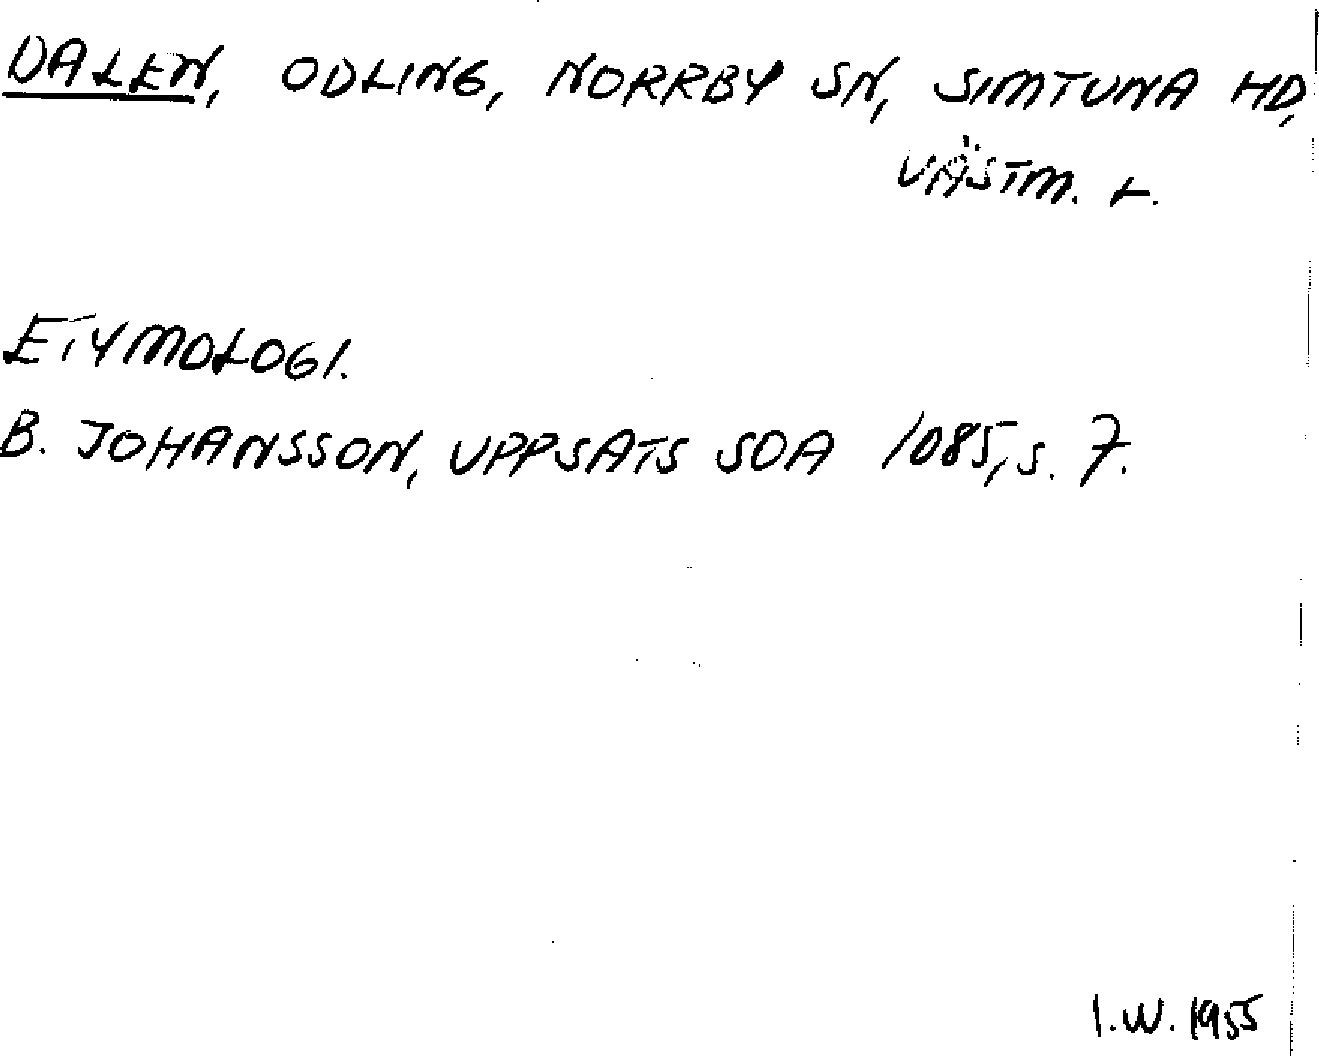 DALEN, ODLING, NORRBY SN, SIMTUNA HD,
VÄSTM. L.
ETYMOLOGI.
B. JOHANSSON, UPPSATS SOA 1085, s. 7.
I.W. 1955